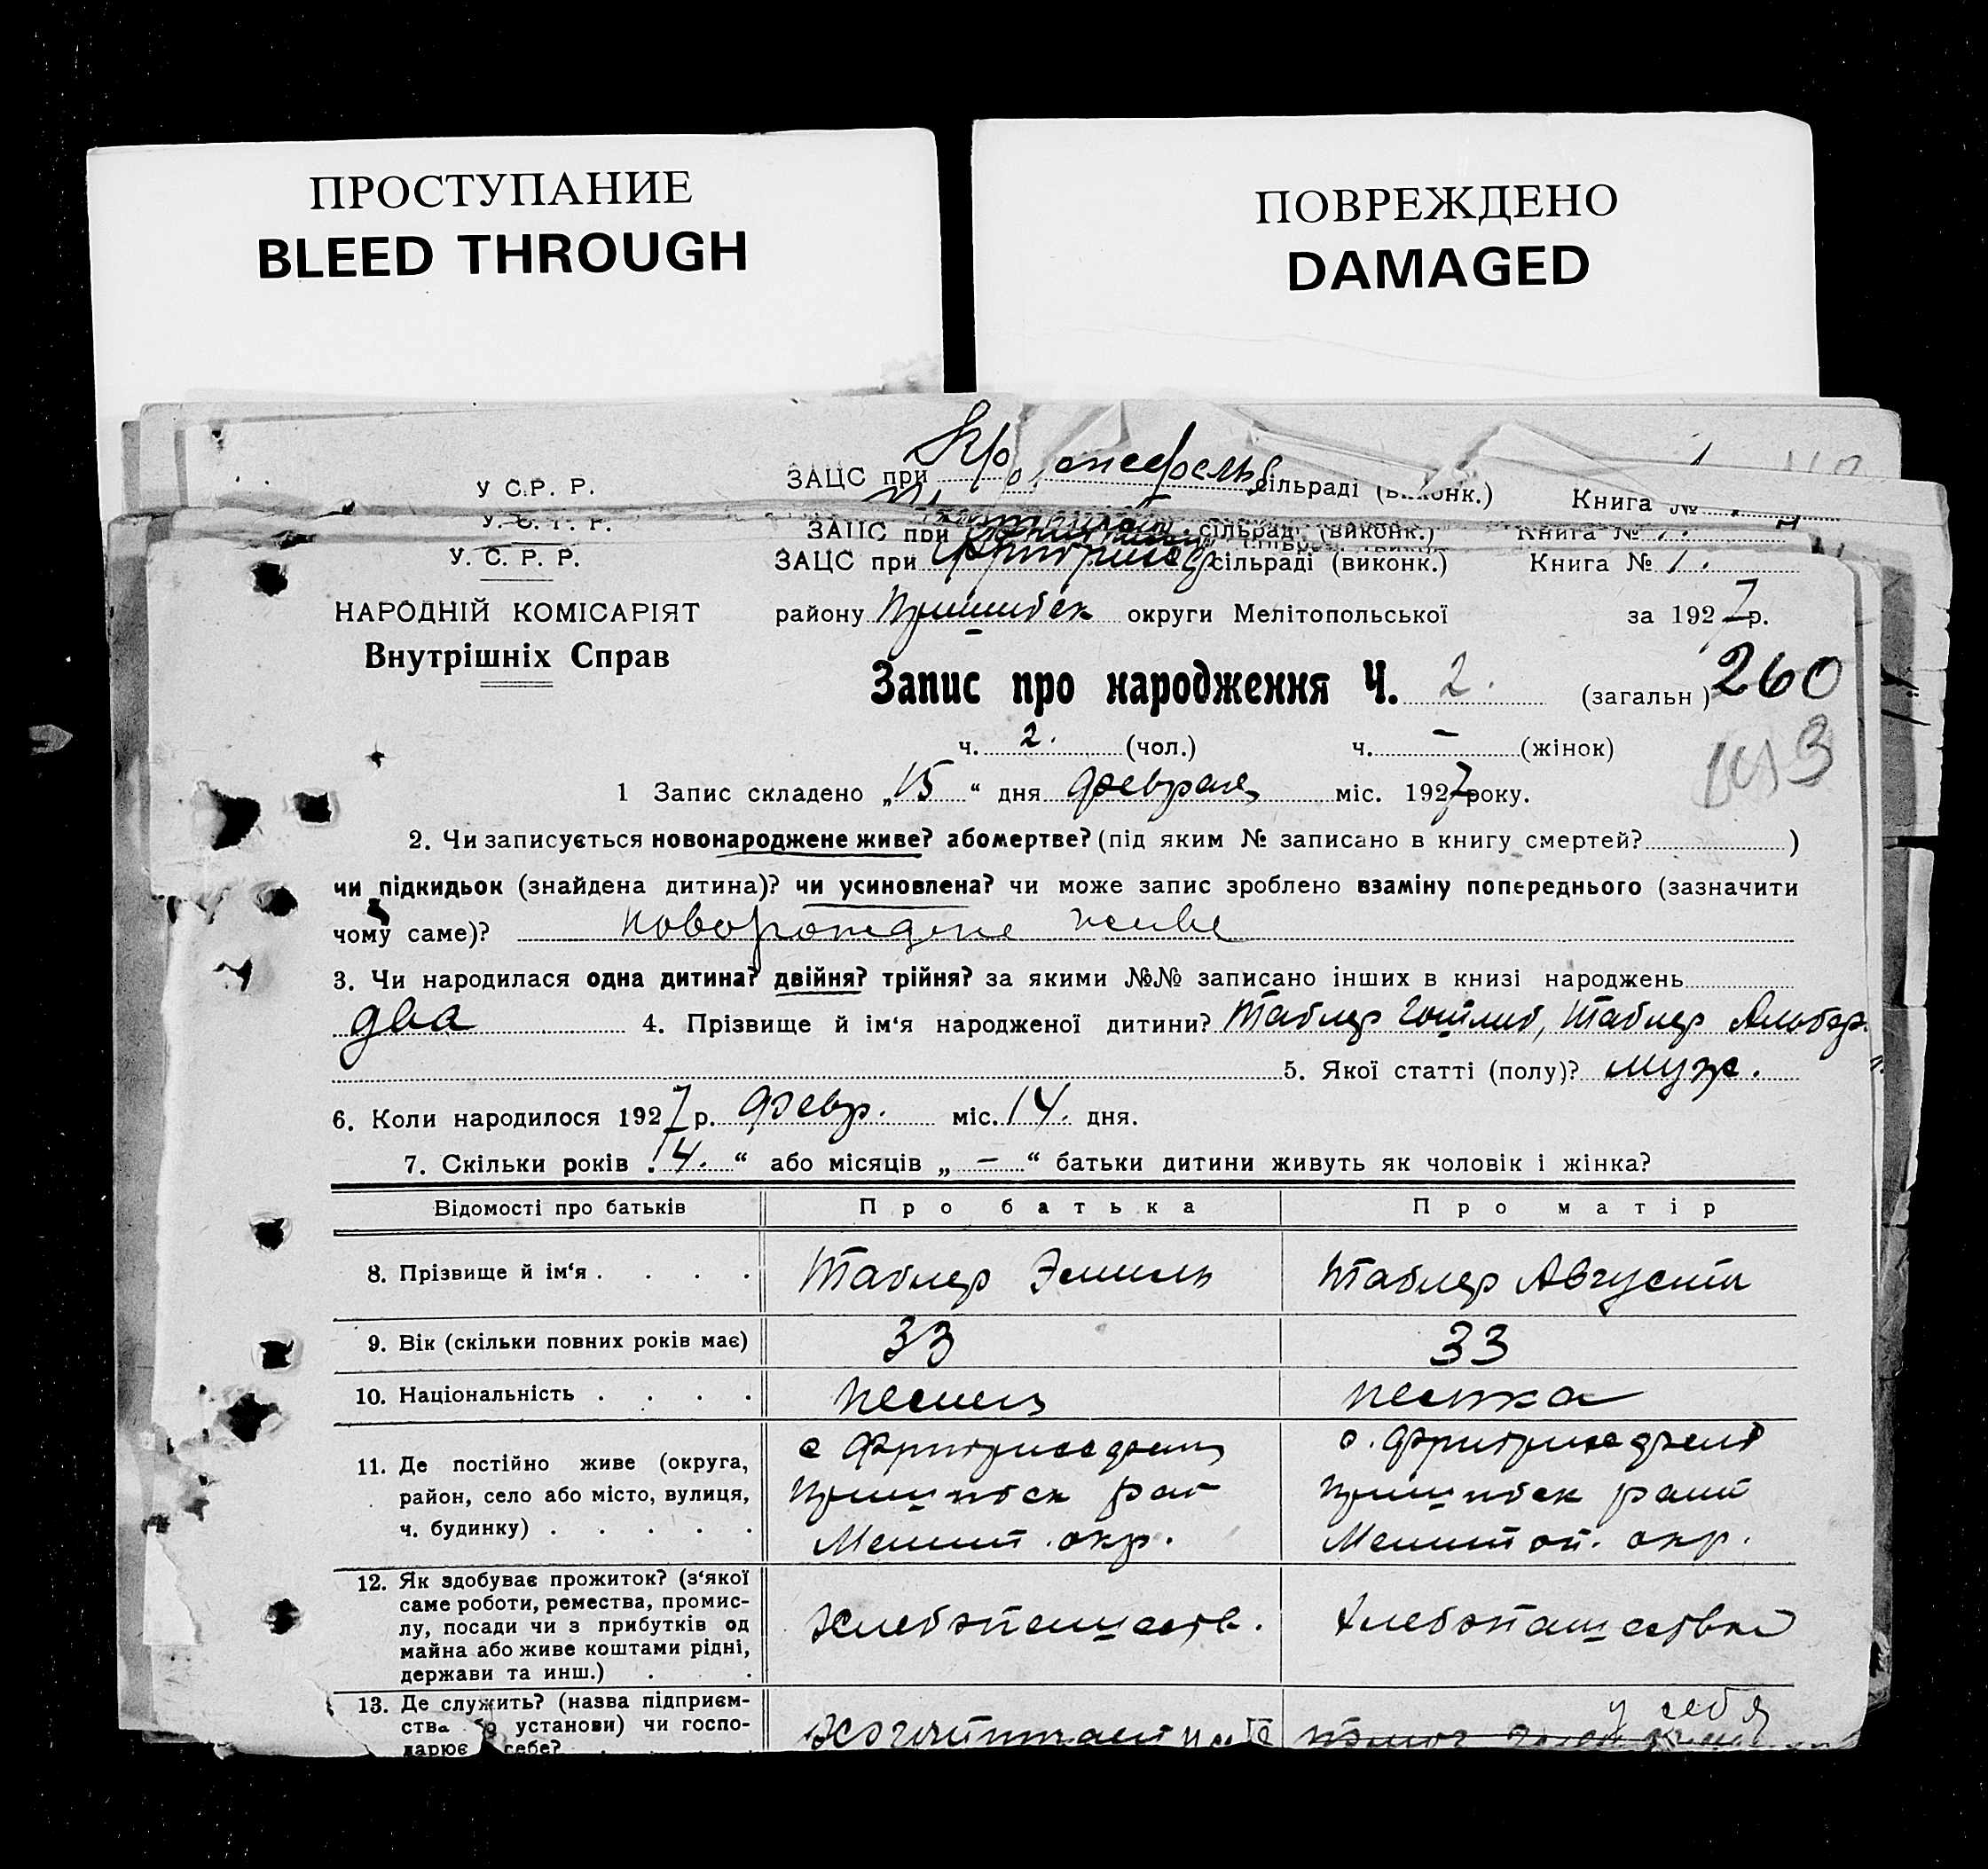 ПРОСТУПАНИЕ
BLEED THROUGH
ПОВРЕЖДЕНО
DAMAGED
У С.Р. Р.
ЗАЦС при сільраді (виконк.) Книга №
У. С. Р. Р.
ЗАЦС при сільраді (виконк.) Книга № 1.
У. С. Р. Р.
ЗАЦС при сільраді (виконк.) Книга № 1.
НАРОДНІЙ КОМІСАРІЯТ
Внутрішніх Справ
району Пришибск округи Мелітопольської за 1927 р.
Запис про народження Ч. 2. (загальн) 260
ч. 2. (чол.) ч. — (жінок)
1 Запис складено „15“ дня февраля міс. 1927 року.
2. Чи записується новонароджене живе? або мертве? (під яким № записано в книгу смертей? )
чи підкидьок (знайдена дитина)? чи усиновлена? чи може запис зроблено взаміну попереднього (зазначити
чому саме)? новорождене живе
3. Чи народилася одна дитина? двійня? трійня? за якими №№ записано інших в книзі народжень
два 4. Прізвище й ім'я народженої дитини? Таблер Готлиб, Таблер Альбер
5. Якої статті (полу)? муж.
6. Коли народилося 1927 р. Февр. міс. 14. дня.
7. Скільки років „14.“ або місяців „—“ батьки дитини живуть як чоловік і жінка?
Відомості про батьків Про батька Про матір
8. Прізвище й ім'я . . . . Таблер Эмиль Таблер Августа
9. Вік (скільки повних років має) 33 33
10. Національність . . . . Немец Немка
11. Де постійно живе (округа,
район, село або місто, вулиця,
ч. будинку) . . . . .
Пришибск
Мелит. окр.
Пришибск
Мелитоп. окр.
12. Як здобуває прожиток? (з'якої
саме роботи, ремества, промис-
лу, посади чи з прибутків од
майна або живе коштами рідні,
держави та инш.) . .
Хлебопашеств.
13. Де служить? (назва підприєм-
ства або установи) чи госпо-
дарює себе?
у себя